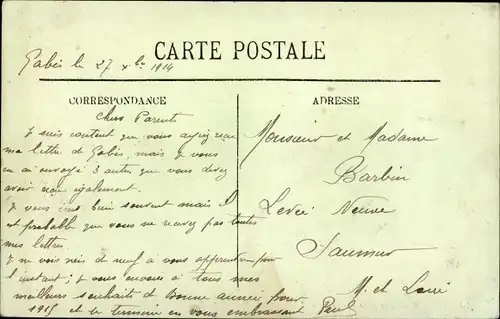 CARTE POSTALE
Gabès le 27 xbre 1914
CORRESPONDANCE
Chers Parents
Je suis content que vous ayiez reçu
ma lettre de Gabès, mais je vous
en ai envoyé 3 autres que vous devez
avoir reçu également.
Je vous écris bien souvent mais il
est probable que vous ne recevez pas toutes
mes lettres.
Je ne vois rien de neuf à vous apprendre pour
l'instant; je vous envoie à tous mes
meilleurs souhaits de Bonne année pour
1915 et je termine en vous embrassant
Paul
ADRESSE
Monsieur et Madame
Barbin
Levée Neuve
Saumur
M. et Loire